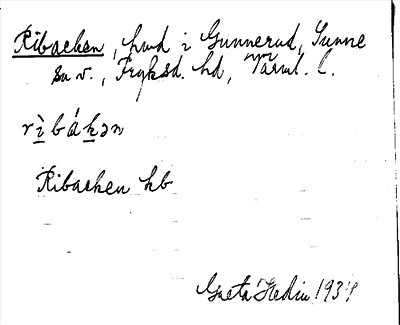 Ribacken, hmd i Gunnerud, Sunne
sn v., Fryksd. hd, Värml. l.
rìbákən
Ribacken hb
Greta Hedin 1934